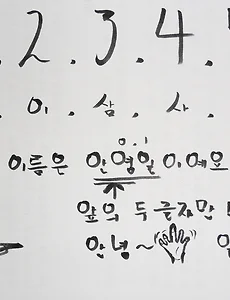 . 2 . 3 . 4 .
. 이 . 삼 . 사 .
0.1
이름은 안영일 이에요
앞의 두 글자만
안녕~